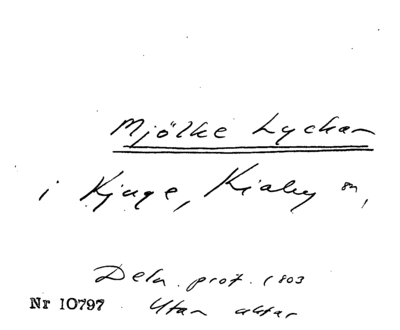 Mjölke Lyckan
i Kjuge, Kiaby sn,
Deln. prot. 1803
Nr 10797 Utan aktar